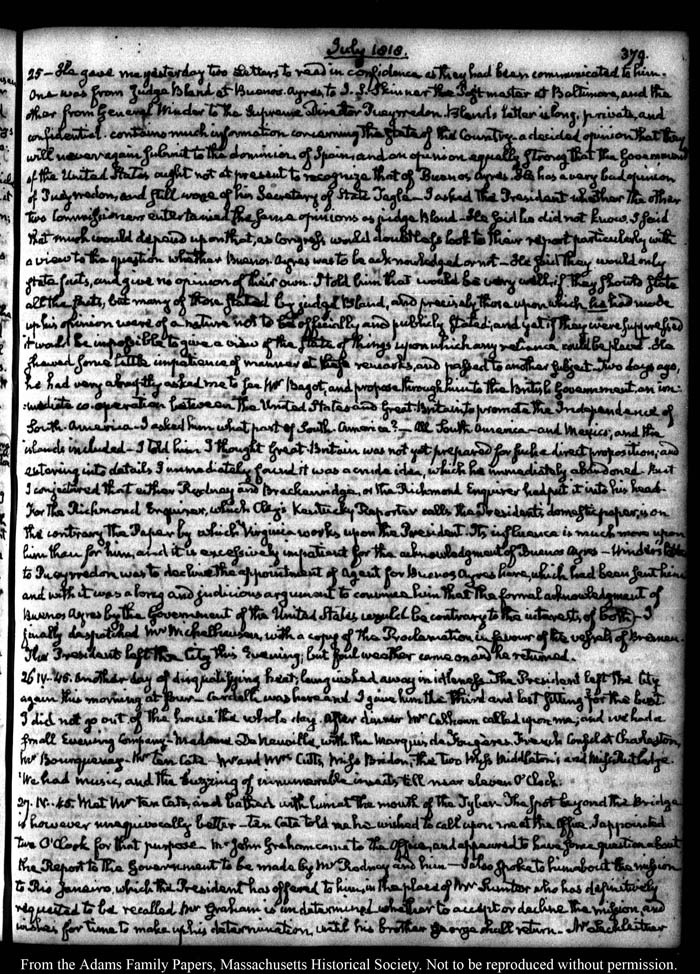 July 1818.
379.
25 – He gave me yesterday two Letters to read in confidence as they had been communicated to him.
One was from Judge Bland at Buenos-Ayres to J. S. Skinner the Postmaster at Baltimore, and the
other from General Winder to the Supreme Director Pueyrredon. Bland's Letter is long, private, and
confidential. contains much information concerning the State of the Country – a decided opinion that they
will never again submit to the dominion of Spain, and an opinion equally strong that the Government
of the United States ought not at present to recognize that of Buenos Ayres. He has a very bad opinion
of Pueyrredon, and still worse of his Secretary of State Tagle – I asked the President whether the other
two Commissioners entertained the same opinions as judge Bland – He said he did not know. I said
that much would depend upon that, as Congress would doubtless look to their report particularly with
a view to the question whether Buenos Ayres was to be acknowledged or not – He said they would only
state facts, and give no opinion of their own. I told him that would be very well, if they should state
all the facts, but many of those stated by judge Bland, and precisely those upon which he had made
up his opinion were of a nature not to be officially and publicly stated; and yet if they were suppressed
it would be impossible to give a view of the state of things upon which any reliance could be placed. He
shewed some little impatience of manner at these remarks, and passed to another subject. Two days ago,
he had very abruptly asked me to see Mr Bagot, and propose through him to the British Government, an im-
mediate co-operation between the United States and Great-Britain to promote the Independence of
South-America – I asked him what part of South-America? – All South America – and Mexico, and the
islands included – I told him I thought Great-Britain was not yet prepared for such a direct proposition; and
entering into details I immediately found it was a crude idea, which he immediately abandoned. But
I conjectured that either Rodney and Brackenridge, or the Richmond Enquirer had put it into his head.
For the Richmond Enquirer, which Clay's Kentucky Reporter calls the President's domestic paper, is on
the contrary the Paper by which Virginia works upon the President. Its influence is much more upon
him than for him, and it is excessively impatient for the acknowledgment of Buenos Ayres – Winder's Letter
to Pueyrredon was to decline the appointment of Agent for Buenos Ayres here, which had been sent him
and with it was a long and judicious argument to convince him that the formal acknowledgment of
Buenos Ayres by the Government of the United States would be contrary to the interests of both – I
finally despatched Mr Michelhausen, with a copy of the Proclamation in favour of the vessels of Bremen.
The President left the City this Evening; but foul weather came on and he returned.
26. IV. 45. Another day of disqualifying heat; languished away in idleness. The President left the City
again this morning at four – Cardelli was here and I gave him the third and last sitting for the bust.
I did not go out of the house the whole day. After dinner Mr Calhoun called upon me; and we had a
small Evening Company – Madame De Neuville, with the Marquis de Fougères French Consul at Charleston,
Mr Bourquenay – Mr ten Cate – Mr and Mrs Cutts, Miss Bridon, the two Miss Middleton's and Miss Rutledge.
We had music, and the buzzing of innumerable insects till near eleven O'Clock.
27. IV. 45. Met Mr ten Cate, and bathed with him at the mouth of the Tyber. The spot beyond the Bridge
is however unequivocally better – ten Cate told me he wished to call upon me at the Office. I appointed
two O'Clock for that purpose – Mr John Graham came to the Office, and appeared to have some question about
the Report to the Government to be made by Mr Rodney and him – I also spoke to him about the mission
to Rio Janeiro, which the President has offered to him, in the place of Mr Sumter who has definitively
requested to be recalled. Mr Graham is undetermined whether to accept or decline the mission, and
wishes for time to make up his determination, until his brother George shall return – Mr Lechleitner
From the Adams Family Papers, Massachusetts Historical Society. Not to be reproduced without permission.